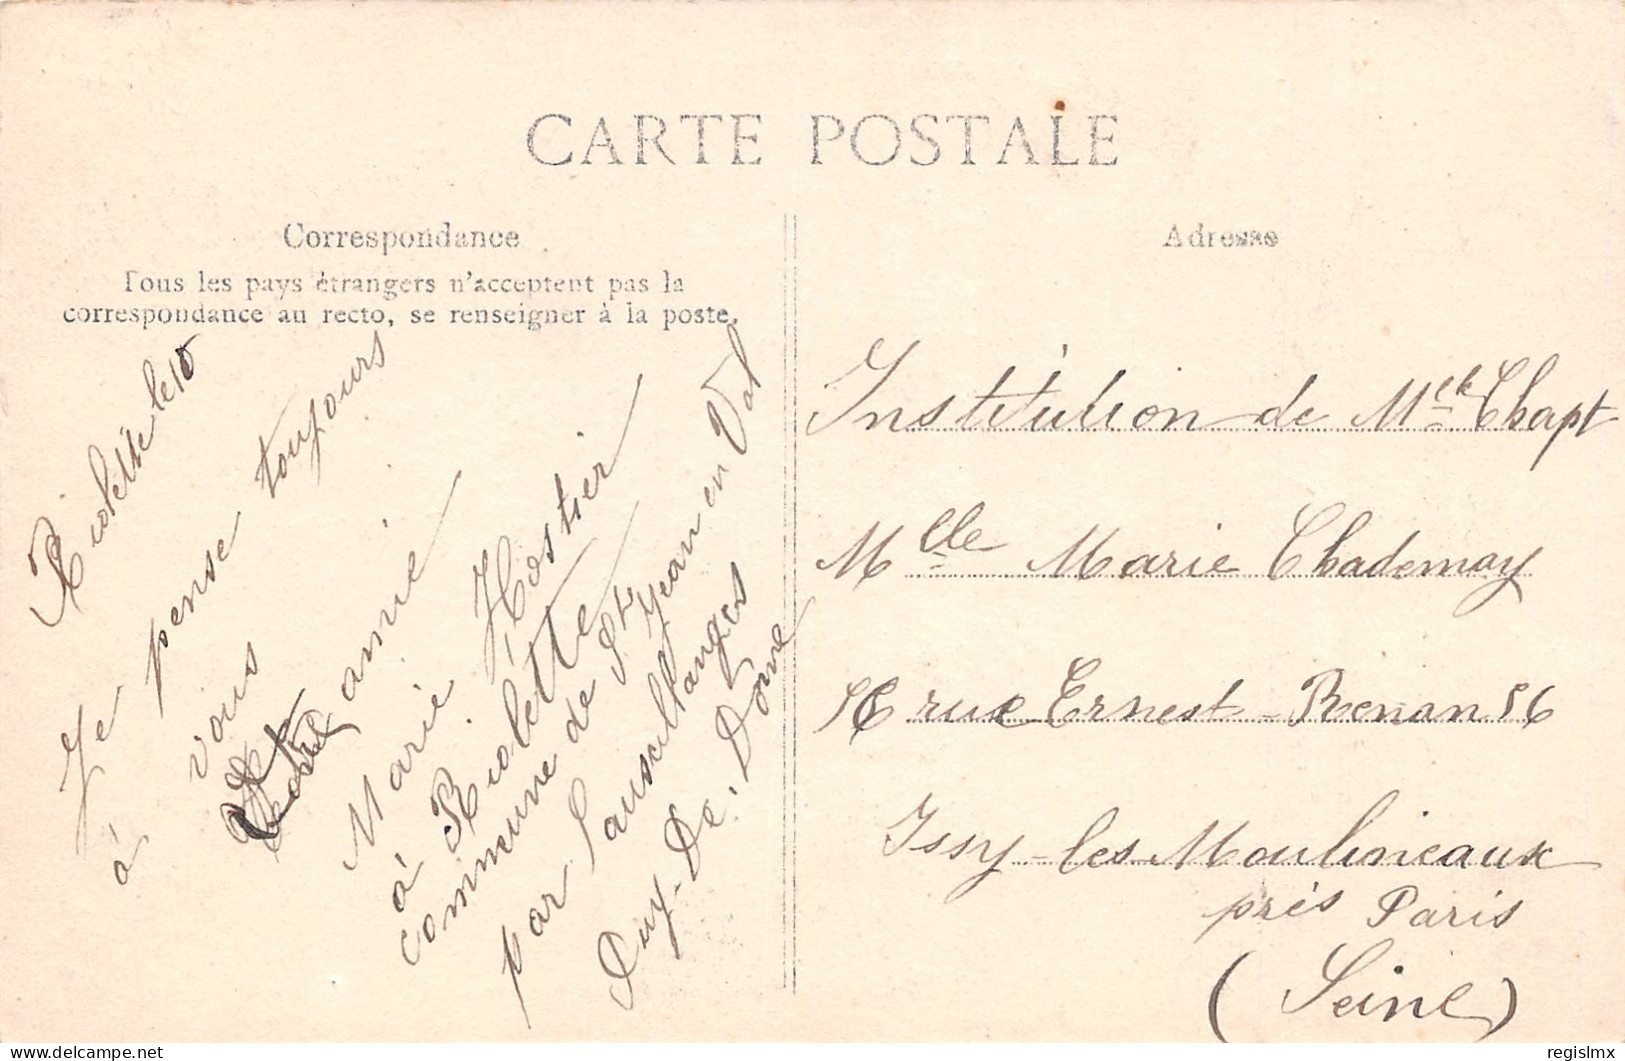 CARTE POSTALE
Correspondance
Tous les pays étrangers n'acceptent pas la
correspondance au recto, se renseigner à la poste.
Riolette le 10
Je pense toujours
à vous
Votre amie
Marie Hostier
à Riolette
commune de St Jean en Val
par Sauxillanges
Puy-De-Dome
Adresse
Institution de Melle Chapt
Melle Marie Chademay
rue Ernest-Renan 56
Issy-les-Moulineaux
près Paris
(Seine)
regislmx
delcampe.net